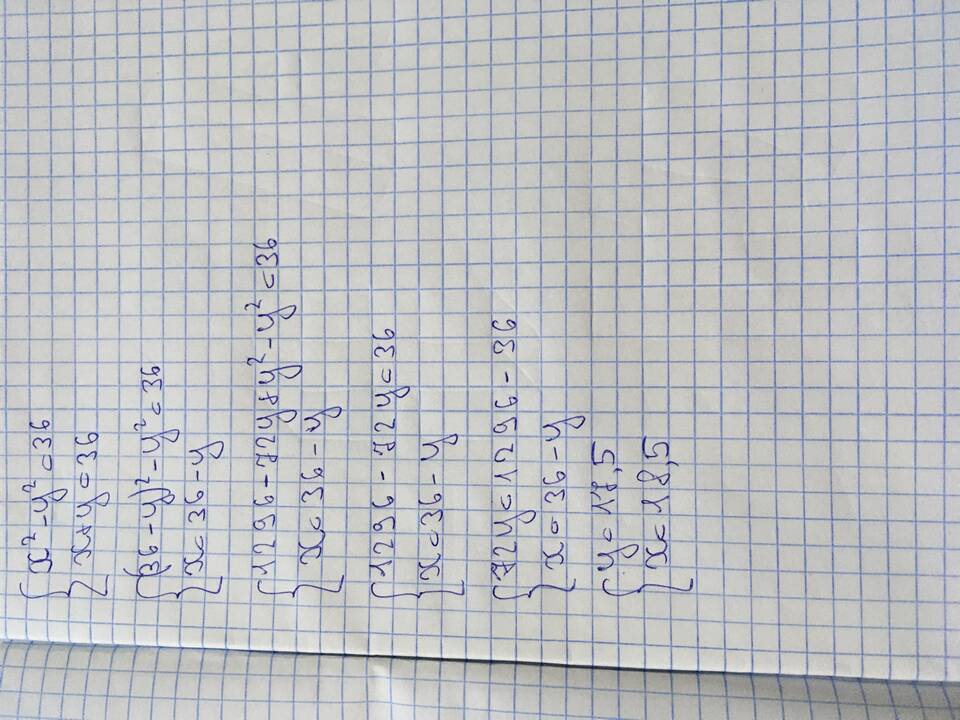 x² - y² = 36
x + y = 36
(36 - y)² - y² = 36
x = 36 - y
1296 - 72y + y² - y² = 36
x = 36 - y
1296 - 72y = 36
x = 36 - y
72y = 1296 - 36
x = 36 - y
y = 17,5
x = 18,5